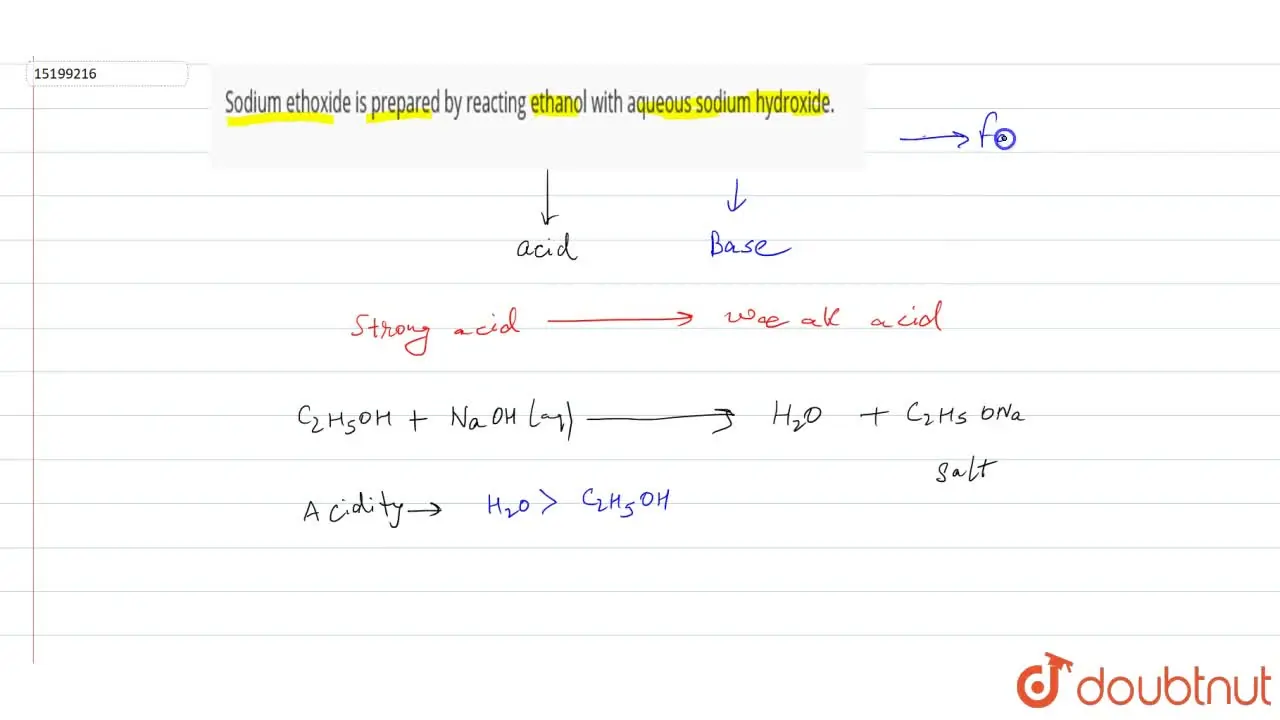 15199216
Sodium ethoxide is prepared by reacting ethanol with aqueous sodium hydroxide.
acid Base
Strong acid → Weak acid
C2H5OH + NaOH (aq) → H2O + C2H5ONa
Salt
Acidity → H2O > C2H5OH
doubtnut